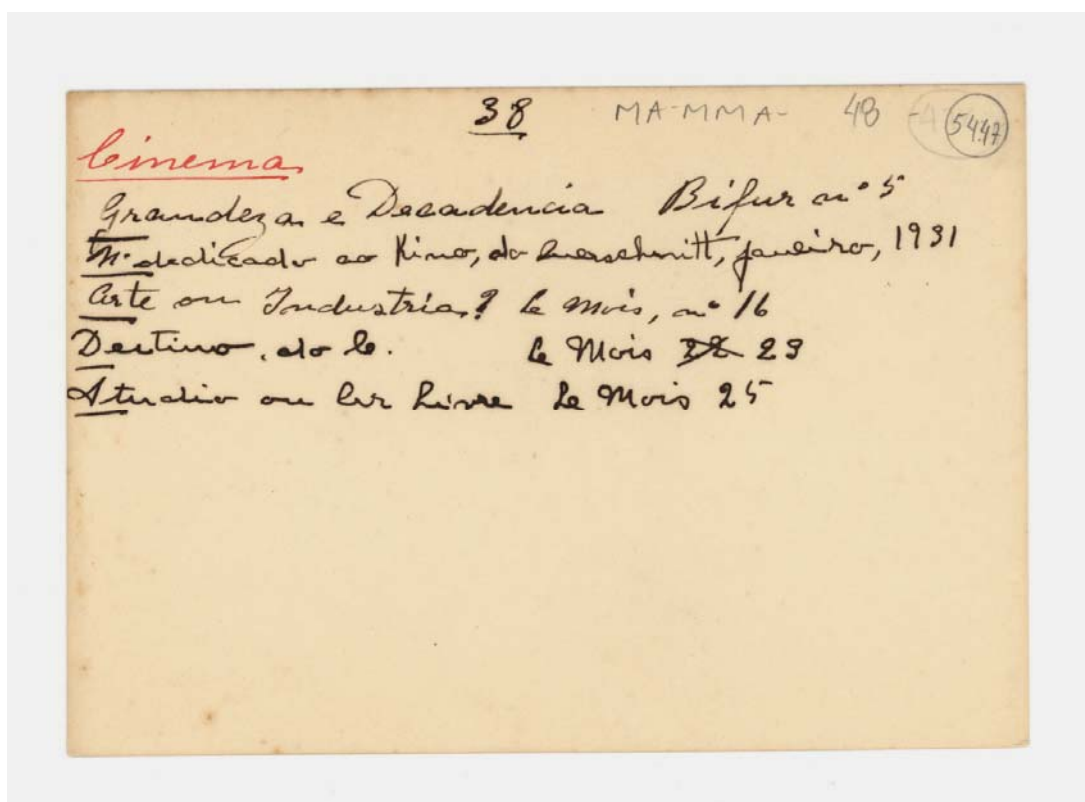 38 MA-MMA- 48 5447
Cinema
Grandeza e Decadencia Bifur nº 5
Nº dedicado ao Kino, do Querschnitt, janeiro, 1931
Arte ou Industria? Le Mois, nº 16
Destino do C. Le Mois 23
Studio ou Ar Livre Le Mois 25